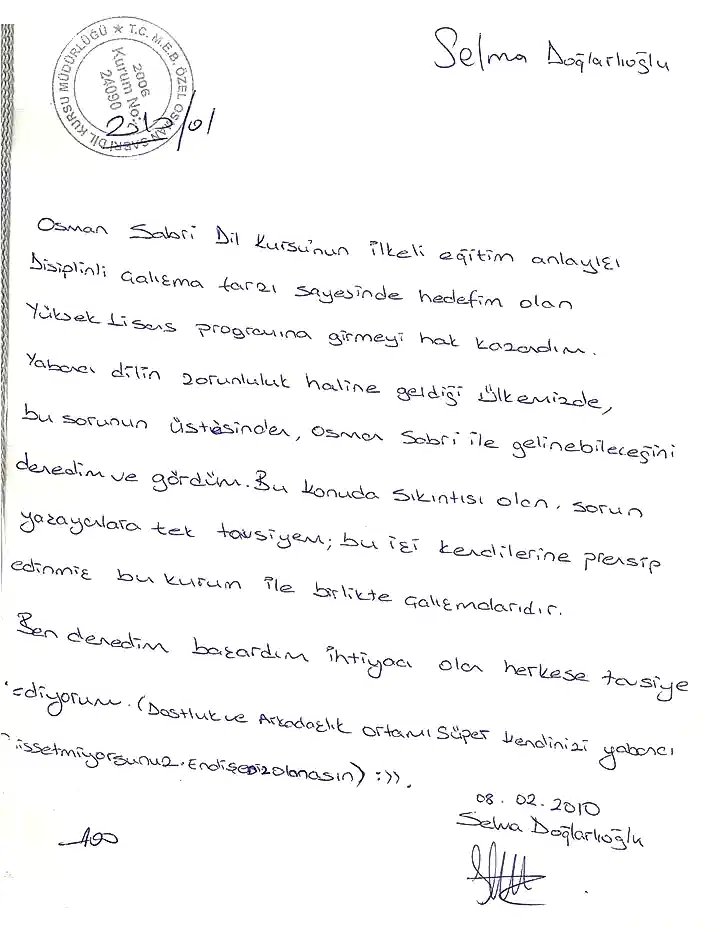 Selma Doğlarlıoğlu
T.C. M.E.B. ÖZEL OSMAN SABRİ DİL KURSU MÜDÜRLÜĞÜ
2006
Kurum No:
24090
2010/01
Osman Sabri Dil Kursu'nun ilkeli eğitim anlayışı
Disiplinli çalışma tarzı sayesinde hedefim olan
Yüksek Lisans programına girmeyi hak kazandım.
Yabancı dilin zorunluluk haline geldiği ülkemizde,
bu sorunun üstesinden, Osman Sabri ile gelinebileceğini
denedim ve gördüm. Bu konuda sıkıntısı olan, sorun
yaşayanlara tek tavsiyem; bu işi kendilerine prensip
edinmiş bu kurum ile birlikte çalışmalarıdır.
Ben denedim başardım ihtiyacı olan herkese tavsiye
ediyorum. (Dostluk ve Arkadaşlık ortamı Süper kendinizi yabancı
hissetmiyorsunuz. Endişeniz olmasın) :)).
08.02.2010
Selma Doğlarlıoğlu